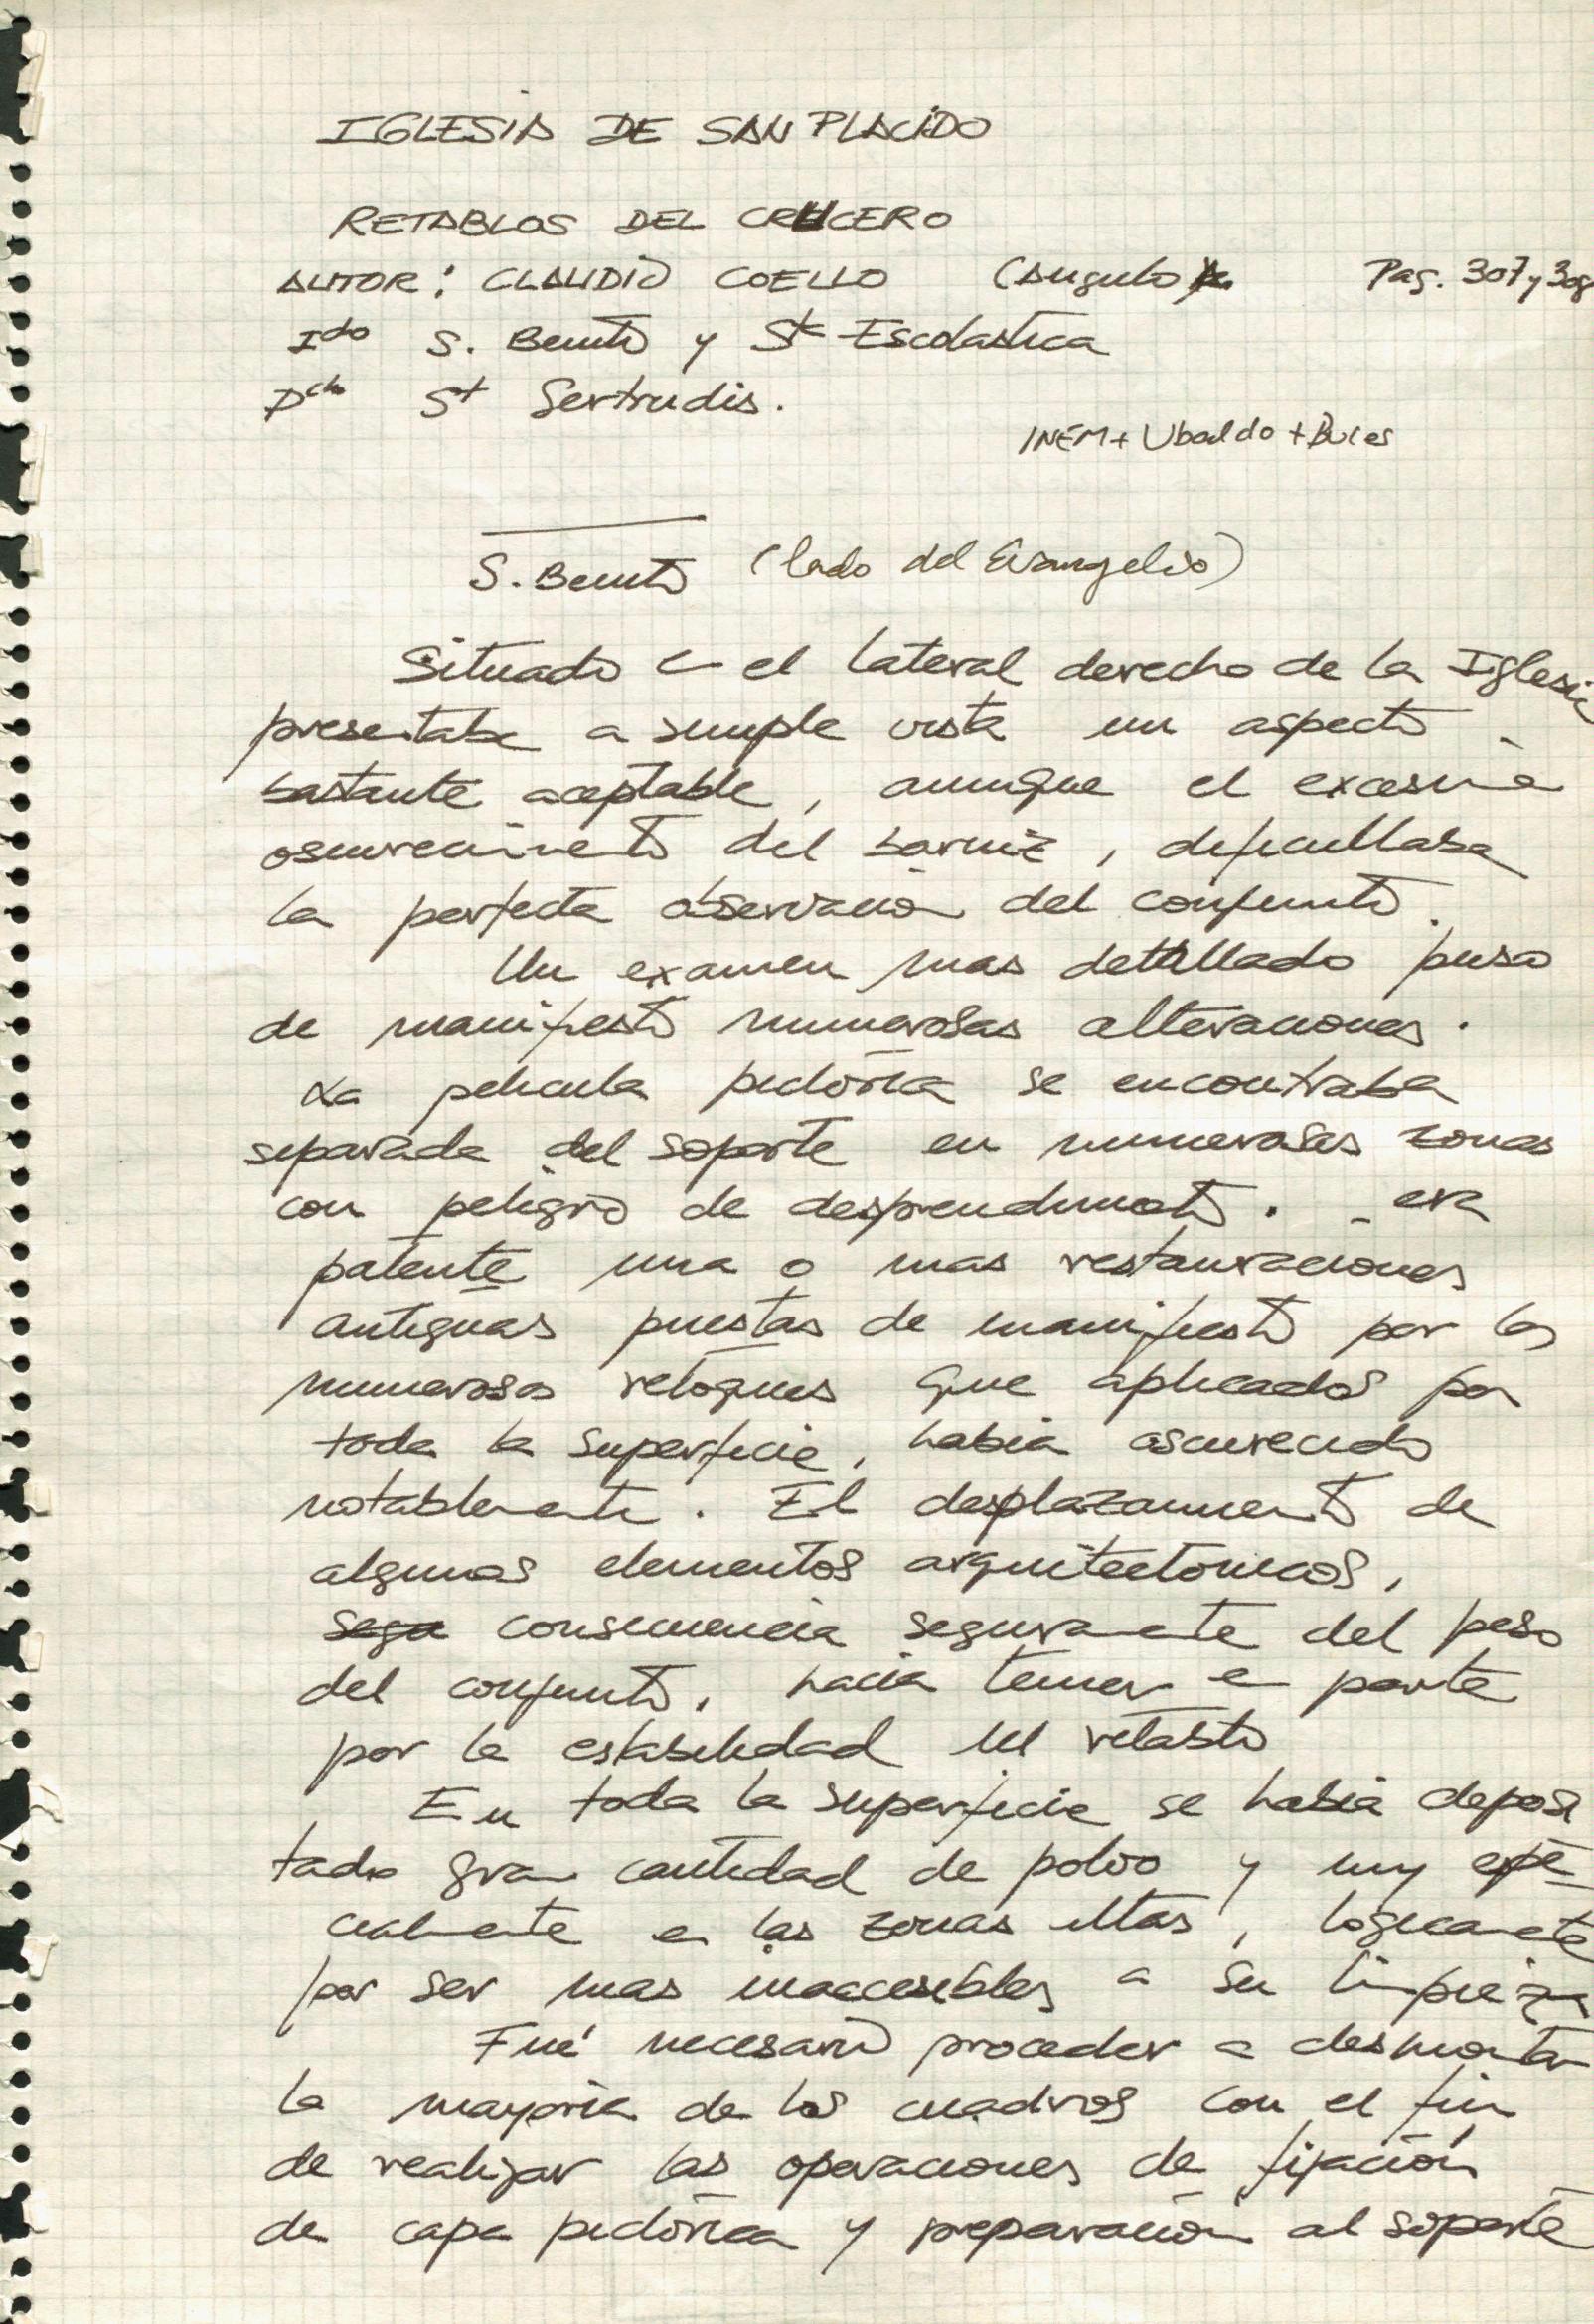 IGLESIA DE SAN PLACIDO
RETABLOS DEL CRUCERO
AUTOR: CLAUDIO COELLO (Angulo Pag. 307 y 308
Ido S. Benito y Sta Escolastica
Dcho St Gertrudis.
INEM + Ubaldo + Bules
S. Benito (lado del Evangelio)
Situado e el lateral derecho de la Iglesia
presentaba a simple vista un aspecto
bastante aceptable, aunque el excesivo
oscurecimiento del barniz, dificultaba
la perfecta observación del conjunto.
Un examen mas detallado puso
de manifiesto numerosas alteraciones.
La pelicula pictórica se encontraba
separada del soporte en numerosas zonas
con peligro de desprendimiento. era
patente una o mas restauraciones
antiguas puestas de manifiesto por los
numerosos retoques que aplicados por
toda la superficie, habia oscurecido
notablemente. El desplazamiento de
algunos elementos arquitectonicos,
sega consecuencia seguramente del peso
del conjunto, hacia temer en parte
por la estabilidad del retablo
En toda la superficie se habia deposi
tado gran cantidad de polvo y muy espe-
cialmente en las zonas altas, logicamente
por ser mas inaccesibles a su limpieza
Fué necesario proceder a desmontar
la mayoria de los cuadros con el fin
de realizar las operaciones de fijación
de capa pictórica y preparación al soporte